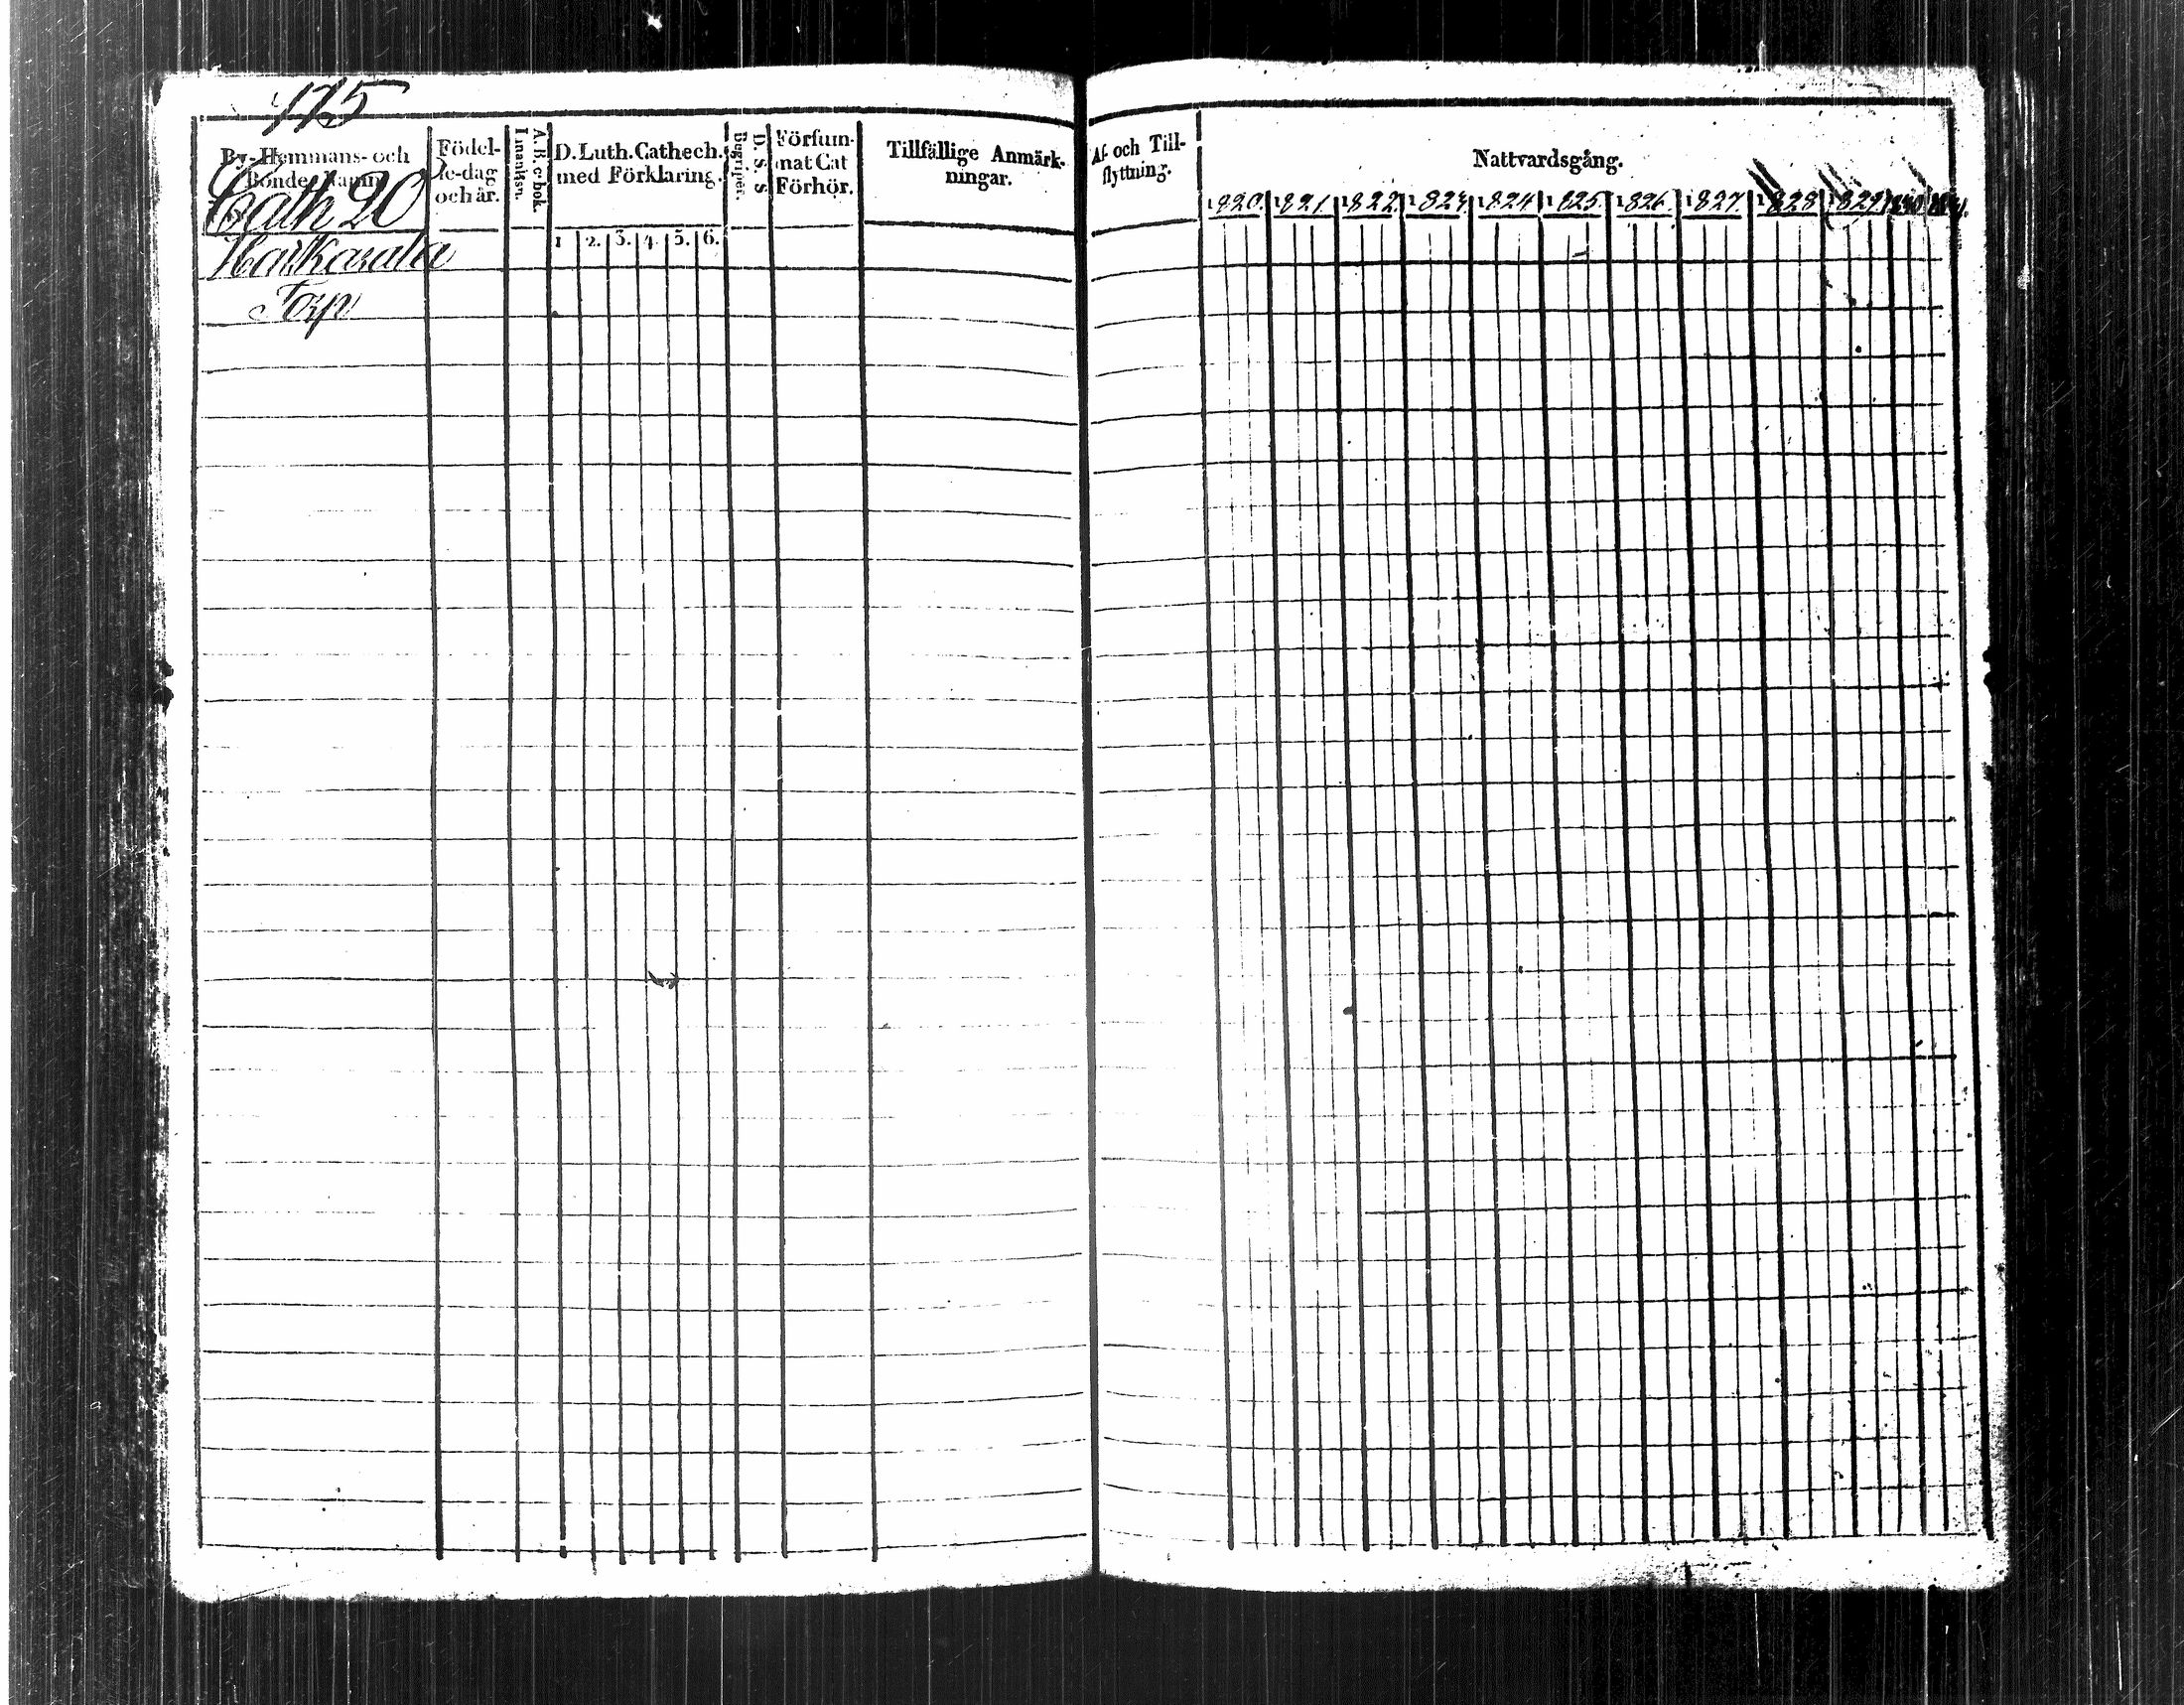 175
By- Hemmans- och
Bonde Namn
Cath 20
Torp
Födel-
se-dag
och år.
A. B. c-bok.
Innantill.
D. Luth. Cathech.
med Förklaring.
1 2. 3. 4. 5. 6.
D. S. S
Begriper.
Försum-
mat Cat
Förhör.
Tillfällige Anmärk-
ningar.
Af- och Till-
flyttning.
Nattvardsgång.
1820. 1821. 1822. 1823. 1824 1825. 1826. 1827. 1828 1829